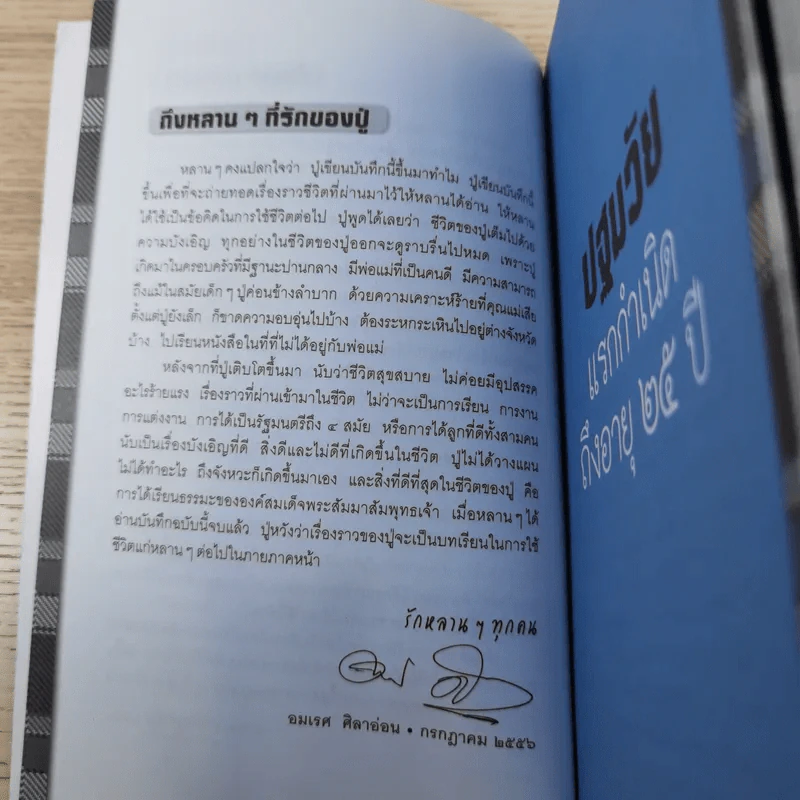 ถึงหลาน ๆ ที่รักของปู่
หลาน ๆ คงแปลกใจว่า ปู่เขียนบันทึกนี้ขึ้นมาทำไม ปู่เขียนบันทึกนี้
ขึ้นเพื่อที่จะถ่ายทอดเรื่องราวชีวิตที่ผ่านมาไว้ให้หลานได้อ่าน ให้หลาน
ได้ใช้เป็นข้อคิดในการใช้ชีวิตต่อไป ปู่พูดได้เลยว่า ชีวิตของปู่เต็มไปด้วย
ความบังเอิญ ทุกอย่างในชีวิตของปู่ออกจะดูราบรื่นไปหมด เพราะปู่
เกิดมาในครอบครัวที่มีฐานะปานกลาง มีพ่อแม่ที่เป็นคนดี มีความสามารถ
ถึงแม้ในสมัยเด็ก ๆ ปู่ค่อนข้างลำบาก ด้วยความเคราะห์ร้ายที่คุณแม่เสีย
ตั้งแต่ปู่ยังเล็ก ก็ขาดความอบอุ่นไปบ้าง ต้องระหกระเหินไปอยู่ต่างจังหวัด
บ้าง ไปเรียนหนังสือในที่ที่ไม่ได้อยู่กับพ่อแม่
หลังจากที่ปู่เติบโตขึ้นมา นับว่าชีวิตสุขสบาย ไม่ค่อยมีอุปสรรค
อะไรร้ายแรง เรื่องราวที่ผ่านเข้ามาในชีวิต ไม่ว่าจะเป็นการเรียน การงาน
การแต่งงาน การได้เป็นรัฐมนตรีถึง ๔ สมัย หรือการได้ลูกที่ดีทั้งสามคน
นับเป็นเรื่องบังเอิญที่ดี สิ่งดีและไม่ดีที่เกิดขึ้นในชีวิต ปู่ไม่ได้วางแผน
ไม่ได้ทำอะไร ถึงจังหวะก็เกิดขึ้นมาเอง และสิ่งที่ดีที่สุดในชีวิตของปู่ คือ
การได้เรียนธรรมะขององค์สมเด็จพระสัมมาสัมพุทธเจ้า เมื่อหลาน ๆ ได้
อ่านบันทึกฉบับนี้จบแล้ว ปู่หวังว่าเรื่องราวของปู่จะเป็นบทเรียนในการใช้
ชีวิตแก่หลาน ๆ ต่อไปในภายภาคหน้า
รักหลาน ๆ ทุกคน
อมเรศ ศิลาอ่อน • กรกฎาคม ๒๕๕๖
ปฐมวัย
แรกกำเนิด
ถึงอายุ ๒๕ ปี